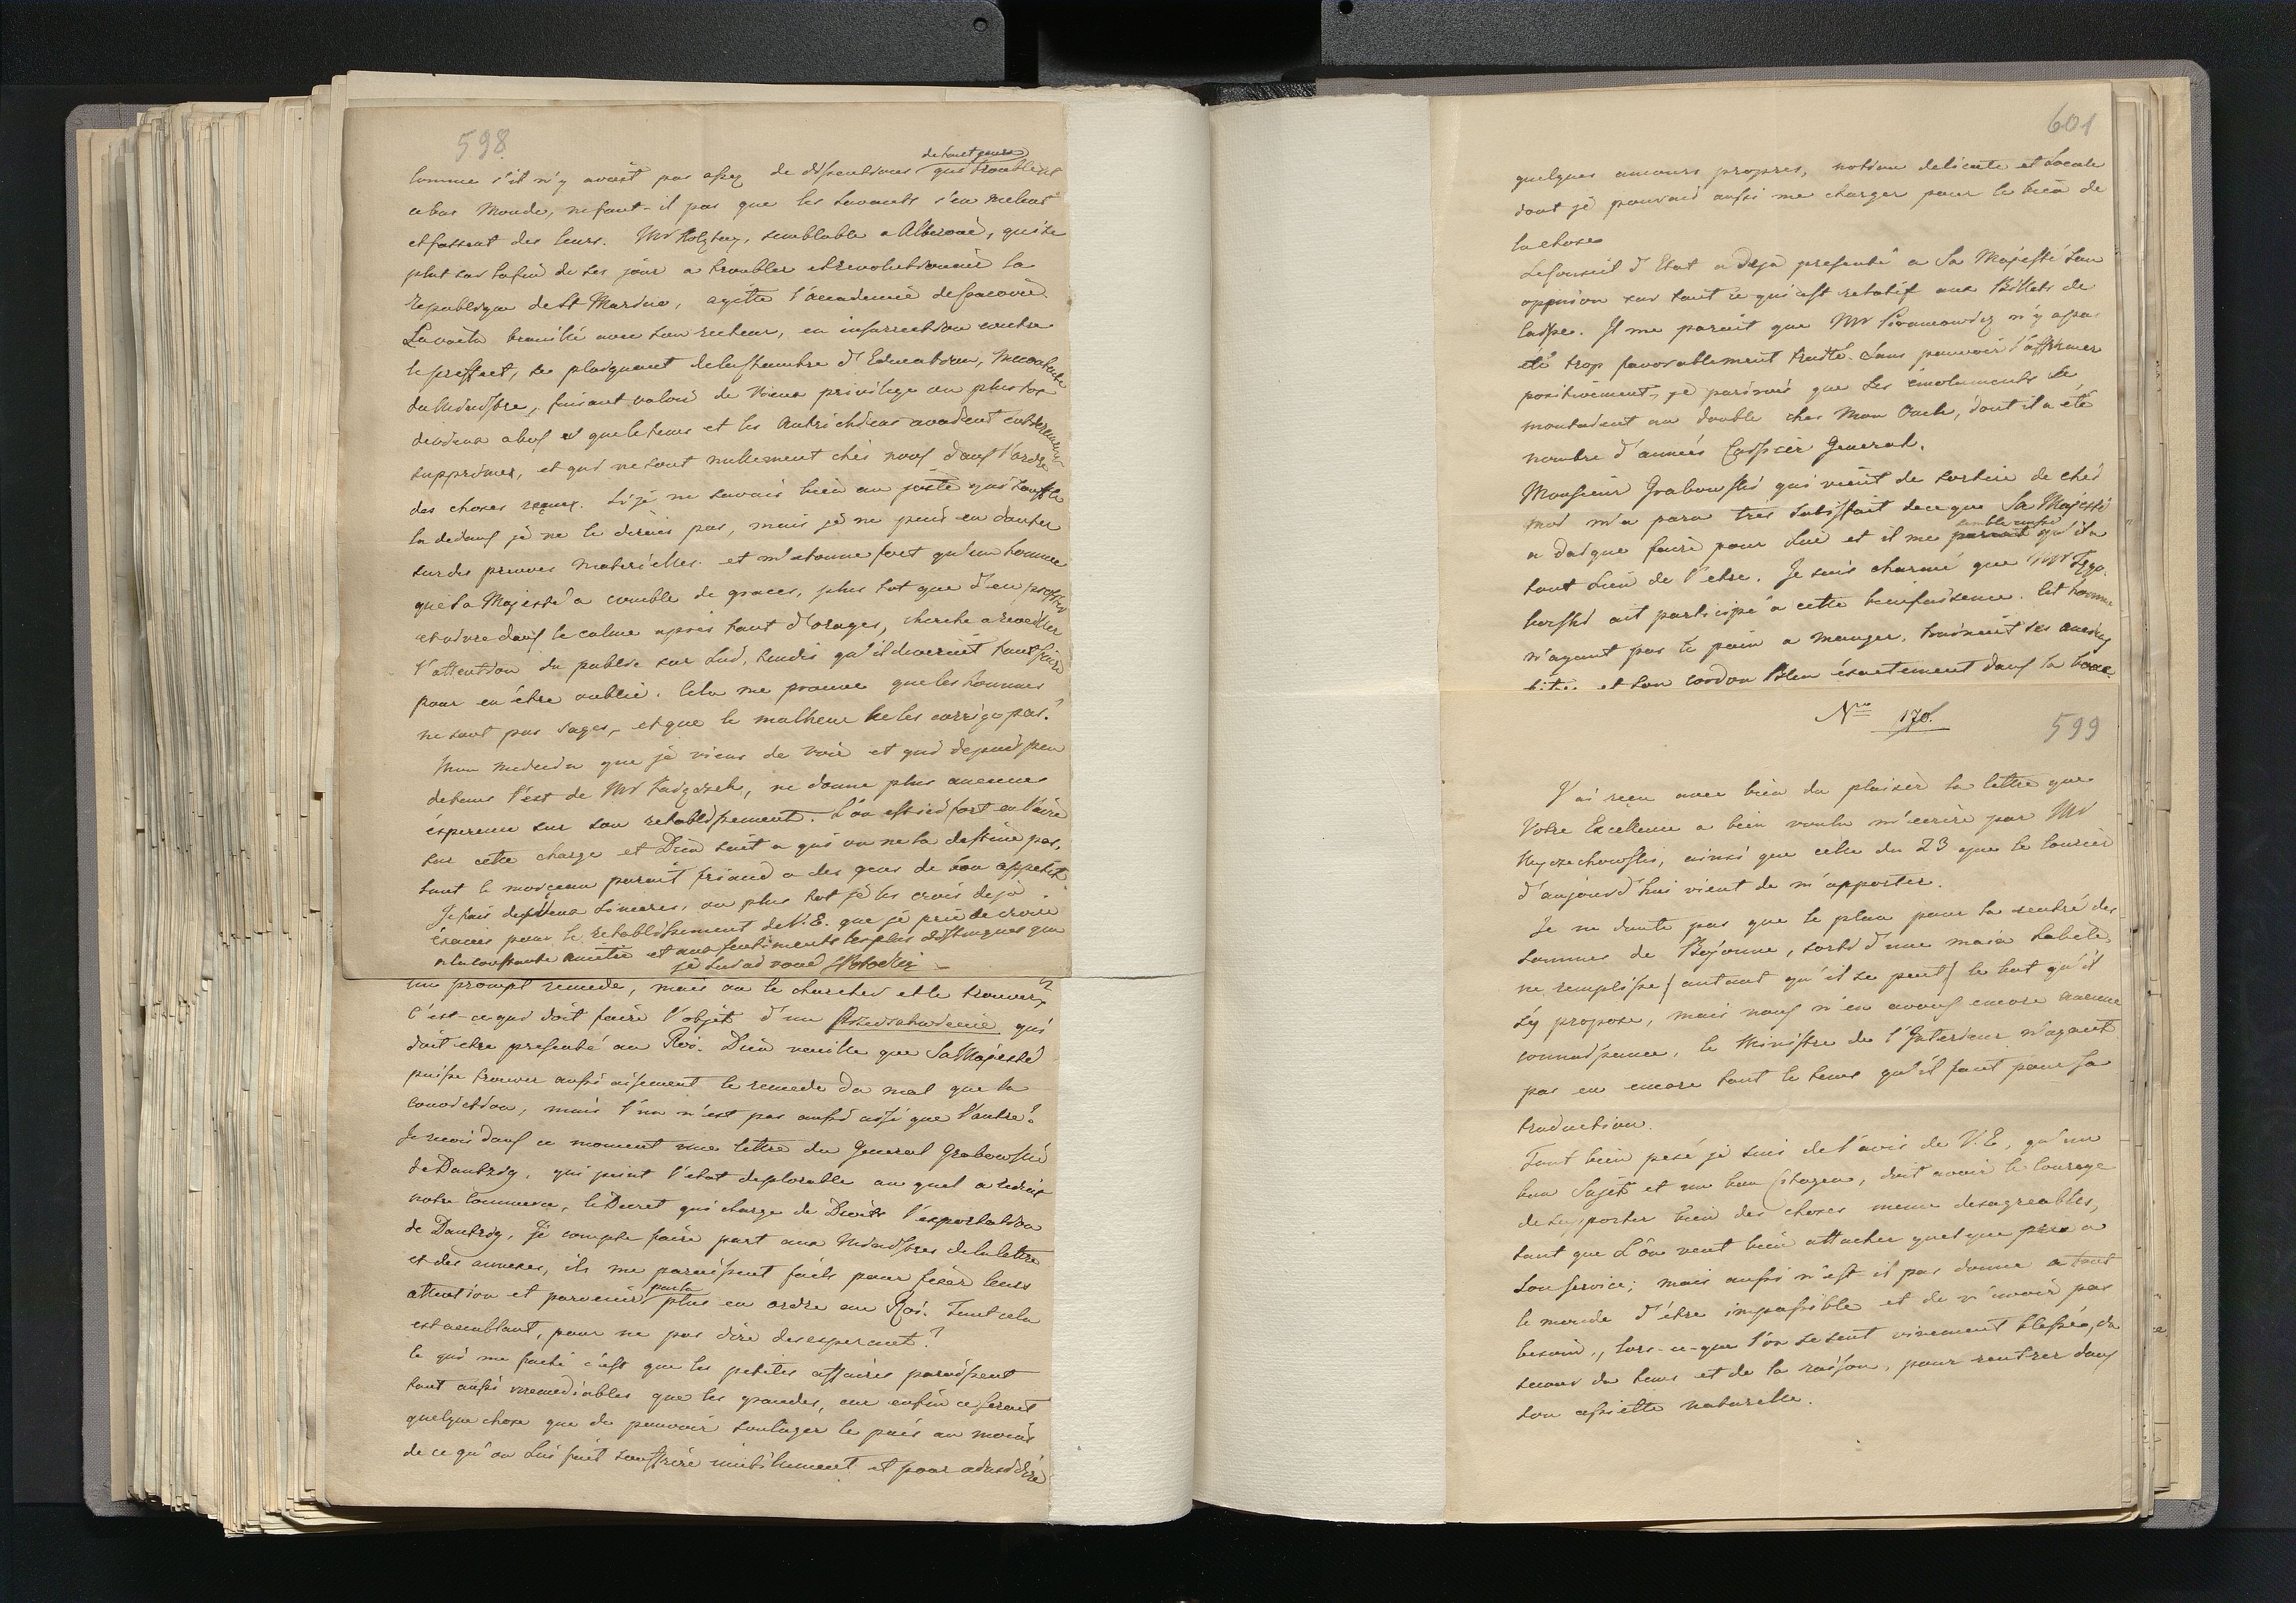 598
de tout genre
Comme s'il n'y avait pas assez de dissentions qui troublent
ce bas Monde, ne faut-il pas que les savants s'en melent
et fassent des leurs. Mr semblable a Alberoni, qui se
plut sur la fin de ses jour a troubler et revolutionner la
Republique de St Marino, agitte l'accademie de Cracovie.
La voila brouillé avec son recteur, en insurrection contre
le preffect, se plaignant de la chambre d'Education, Mecontente
du Ministre, faisant valoir de vieux privilege ou plus tot
d'ancien abus et que le tems et les Autrichiens avaient entierement
supprimes, et qui ne sont nullement chés nous dans l'ordre
des choses reçues. Si je ne savais bien au juste qui souffle
la dedans je ne le dirais pas, mais je ne puis en douter
sur des preuves materielles. et m'etonne fort qu'un homme
que Sa Majesté a comblé de graces, plus tot que d'en profiter
et vivre dans le calme après tant d'orages, cherche a reveiller
l'attention du public sur lui, tandis qu'il deverait tout faire
pour en être oublié. Cela me prouve que les hommes
ne sont pas sages, et que le malheur ne les corrige pas.
Mon Medecin que je viens de voir et qui depuis peu
de tems l'est de Mr ne donne plus aucune
ésperence sur son retablissement. L'on est ici fort en l'aire
sur cette charge et Dieu sait a qui on ne la destine pas,
tant le morceau parait friand a des gens de bon appetit.
Je fais des Vœux sinceres, ou plus tot je les crois deja
éxaucés pour le retablissement de V. E. que je prie de croire
a la constante amitié et aux sentiments les plus distingues que
je lui ai voué SPotocki
un prompt remede, mais ou le chercher et le trouver?
C'est-ce qui doit faire l'objet d'un Przedstawienie qui
doit etre presenté au Roi. Dieu veuille que Sa Majesté
puisse trouver aussi aisement le remede du mal que la
conviction, mais l'un n'est pas aussi aisé que l'autre.
Je reçois dans ce moment une lettre du General Grabowski
de Dantzig, qui peint l'etat deplorable au quel a reduit
notre Commerce, le Decret qui charge de Droits l'exportation
de Dantzig. Je compte faire part aux Ministres de la lettre
et des annexes, ils me paraissent faits pour fixer leurs
attention et parvenir par la plus en ordre au Roi. Tout cela
est accablant, pour ne pas dire desesperant?
Ce qui me fache c'est que les petites affaires paraissent
tout aussi irremediables que les grandes, car enfin ce serait
quelque chose que de pouvoir soulager le païs au moins
de ce qu'on lui fait souffrire inutilement et pour ainsi dire
601
quelques amours propres, notion delicate et locale
dont je pourrais aussi me charger pour le bien de
la chose.
Le Conseil d'Etat a deja presenté a Sa Majesté son
oppinion sur tout ce qui est relatif aux Billets de
Caisse. Il me parait que Mr n'y a pas
été trop favorablement traité. Sans pouvoir l'affirmer
positivement, je parierais que les émoluments se
montaient au double ches Mon Oncle, dont il a été
nombre d'années Caissier General.
Monsieur Grabowski qui vient de sortir de chés
moi m'a paru tres satisfait de ce que Sa Majesté
semble aussi
a daigné faire pour lui et il me parait qu'il a
tout lieu de l'etre. Je suis charmé que Mr
ait participé a cette bienfaisence. Cet homme
n'ayant pas le pain a manger, trainait ses
et son cordon bleu éxactement dans la boue.
Nro 170.
599
J'ai reçu avec bien du plaisir la lettre que
Votre Excellence a bien voulu m'écrire par Mr
Wojczechowski, ainsi que celle du 23 que le Courier
d'aujourd'hui vient de m'apporter.
Je ne doute pas que le plan pour la rentré des
sommes de Bajonne, sorti d'une main habile,
ne remplisse (autant qu'il se peut) le but qu'il
s'y propose, mais nous n'en avons encore aucune
connaissance, le Ministre de l'Interieur n'ayant
pas eu encore tout le tems qu'il faut pour sa
traduction.
Tout bien pesé je suis de l'avis de V. E. qu'un
bon Sujet et un bon Citoyen, doit avoir le courage
de supporter bien des choses meme desagreables,
tant que l'on veut bien attacher quelque prix a
son service; mais aussi n'est-il pas donné a tout
le monde d'être impassible et de n'avoir pas
besoin, lors-ce-que l'on se sent vivement blessé, du
secours du tems et de la raison, pour rentrer dans
son assiette naturelle.